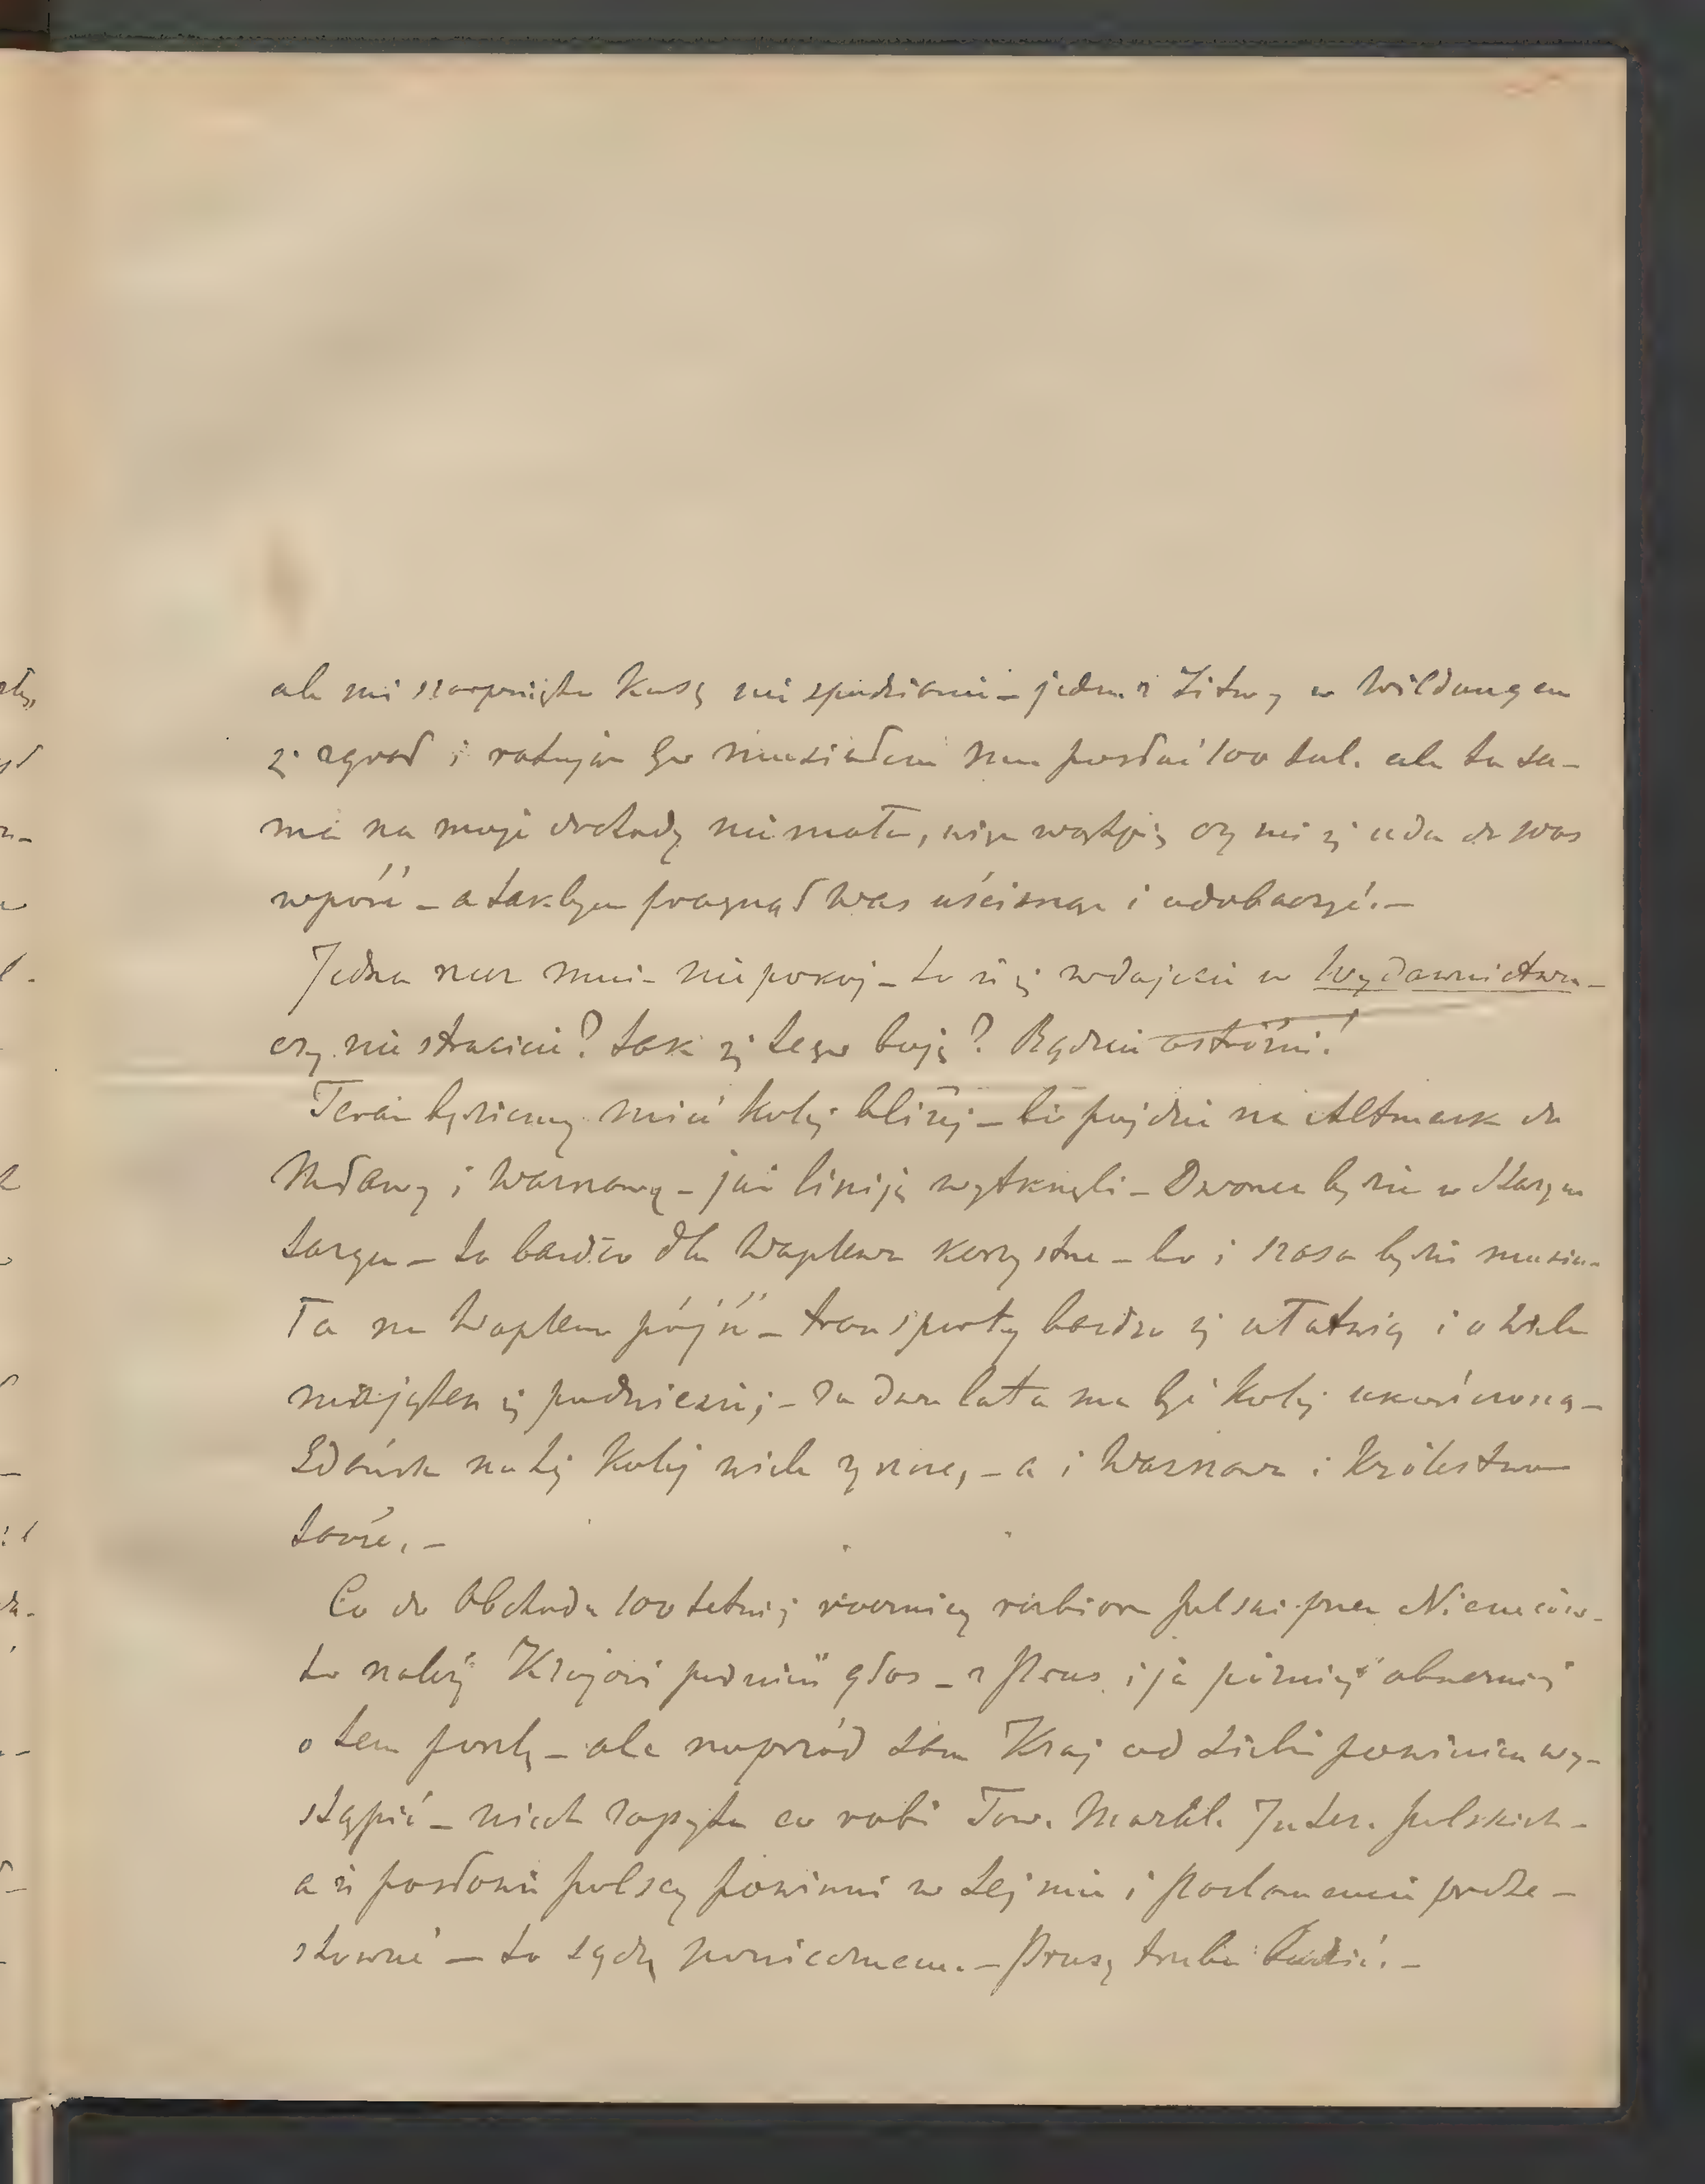 ale mi szarpnięto kasę niespodzianie – jeden z Litwy w Wildungen
się zgrał i ratując go musiałem mu posłać 100 tal. ale ta sa-
ma na moje dochody nie mała, więc wątpię czy mi się uda do was
wpaść – a takbym pragnął was uścisnąć i udobaczyć. –
Jedna rzecz mnie niepokoj – to iż się wdajecie w Wydawnictwa –
czy nie stracicie? Tak się tego boję? Bądźcie ostróżni!
Teraz będziemy mieć kolej bliżej – bo pójdzie na Altmark do
Mławy i Warszawy – już liniję wytknęli – Dworzec będzie w Starym
targu – to bardzo dla Waplewa korzystne – bo i szosa będzie musia-
ła na Waplewo pójść – transporty bardzo się ułatwią i o wiele
majątek się podniesie; – za dwa lata ma być kolej ukończoną –
Gdańsk na tej kolej wiele zyszcze, – a i Warszawa i Królestwo
także. –
Co do Obchodu 100 letniej rocznicy rozbioru polski przez Niemców –
to należy Krajowi podnieść głos – z Prus i ja później obszerniej
o tem poszlę – ale naprzód sam Kraj od siebie powinien wy-
stąpić – niech zapyta co robi Tow. Moral. Inter. polskich –
a iż posłowie polscy powinni w Sejmie i Parlamencie prote-
stować – to sądzę powiedziem. – Prusy trzeba budzić. –